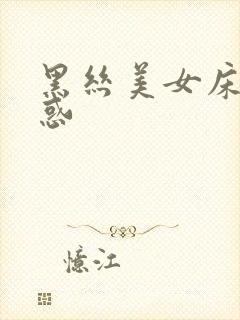 黑丝美女床
惑
憶江